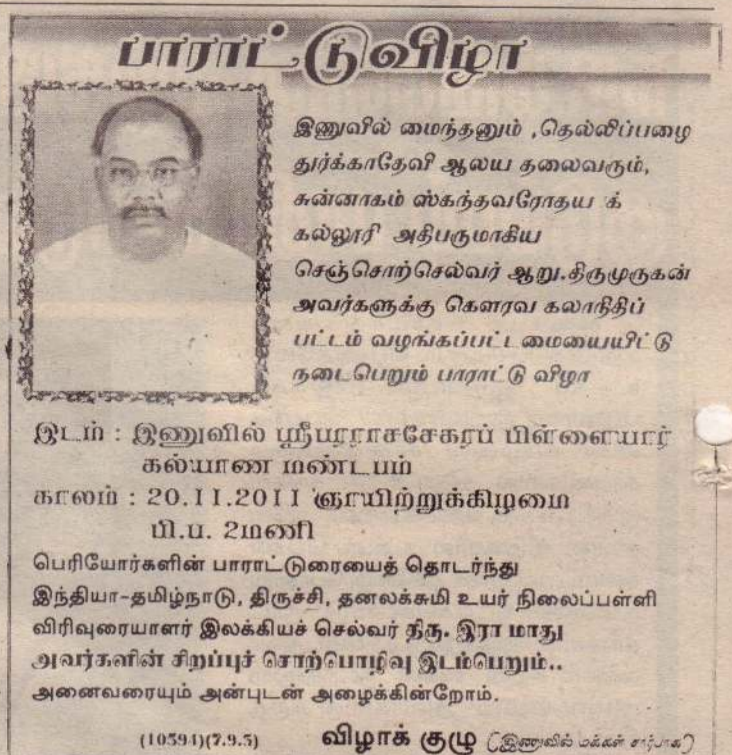 பாராட்டுவிழா
இணுவில் மைந்தனும் ,தெல்லிப்பழை
துர்க்காதேவி ஆலய தலைவரும்,
சுன்னாகம் ஸ்கந்தவரோதய க்
கல்லூரி அதிபருமாகிய
செஞ்சொற்செல்வர் ஆறு.திருமுருகன்
அவர்களுக்கு கௌரவ கலாநிதிப்
பட்டம் வழங்கப்பட்டமையையிட்டு
நடைபெறும் பாராட்டு விழா
இடம் : இணுவில் ஸ்ரீபரராசசேகரப் பிள்ளையார்
கல்யாண மண்டபம்
காலம் : 20.11.2011 ஞாயிற்றுக்கிழமை
பி.ப. 2மணி
பெரியோர்களின் பாராட்டுரையைத் தொடர்ந்து
இந்தியா-தமிழ்நாடு, திருச்சி, தனலக்சுமி உயர் நிலைப்பள்ளி
விரிவுரையாளர் இலக்கியச் செல்வர் திரு. இரா மாது
அவர்களின் சிறப்புச் சொற்பொழிவு இடம்பெறும்..
அனைவரையும் அன்புடன் அழைக்கின்றோம்.
(10594)(7.9.5) விழாக் குழு (இணுவில் மக்கள் சார்பாக)